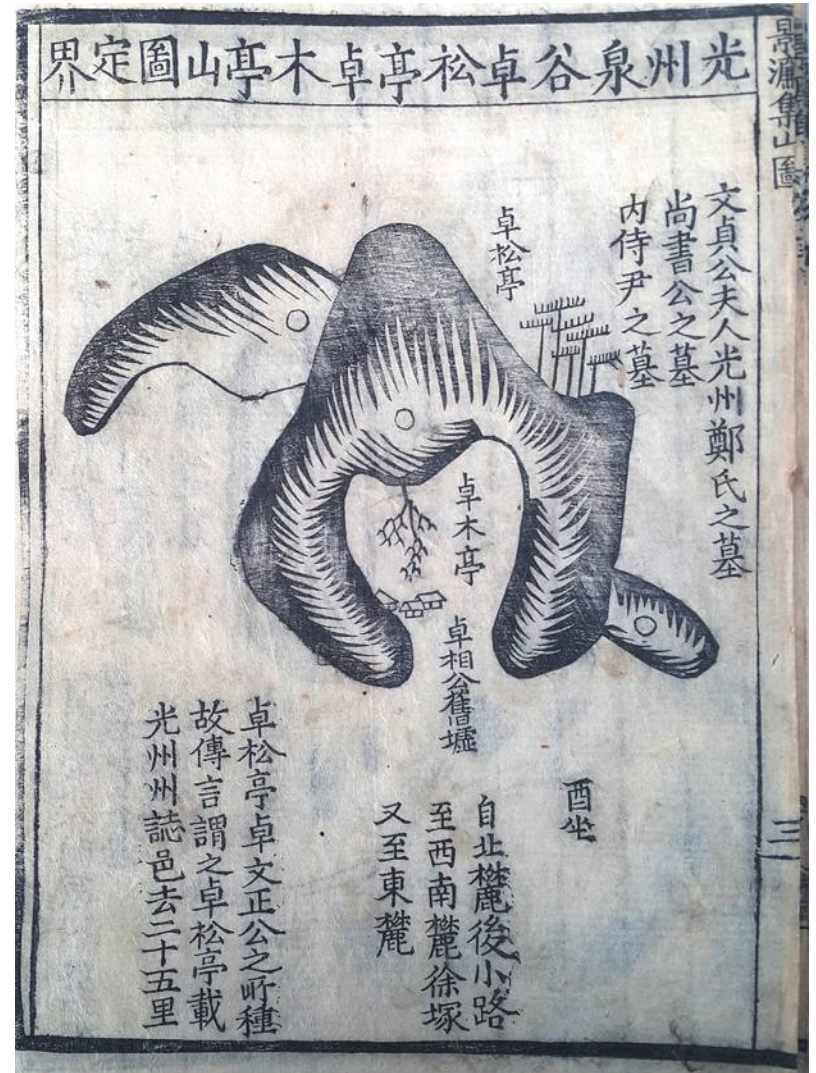 景濂集山圖
三
光州泉谷卓松亭卓木亭山圖定界
文貞公夫人光州鄭氏之墓
尚書公之墓
內侍尹之墓
卓松亭
卓木亭
卓相公舊墟
酉坐
自北麓後小路
至西南麓徐塚
又至東麓
卓松亭卓文正公之所種
故傳言謂之卓松亭載
光州州誌邑去二十五里